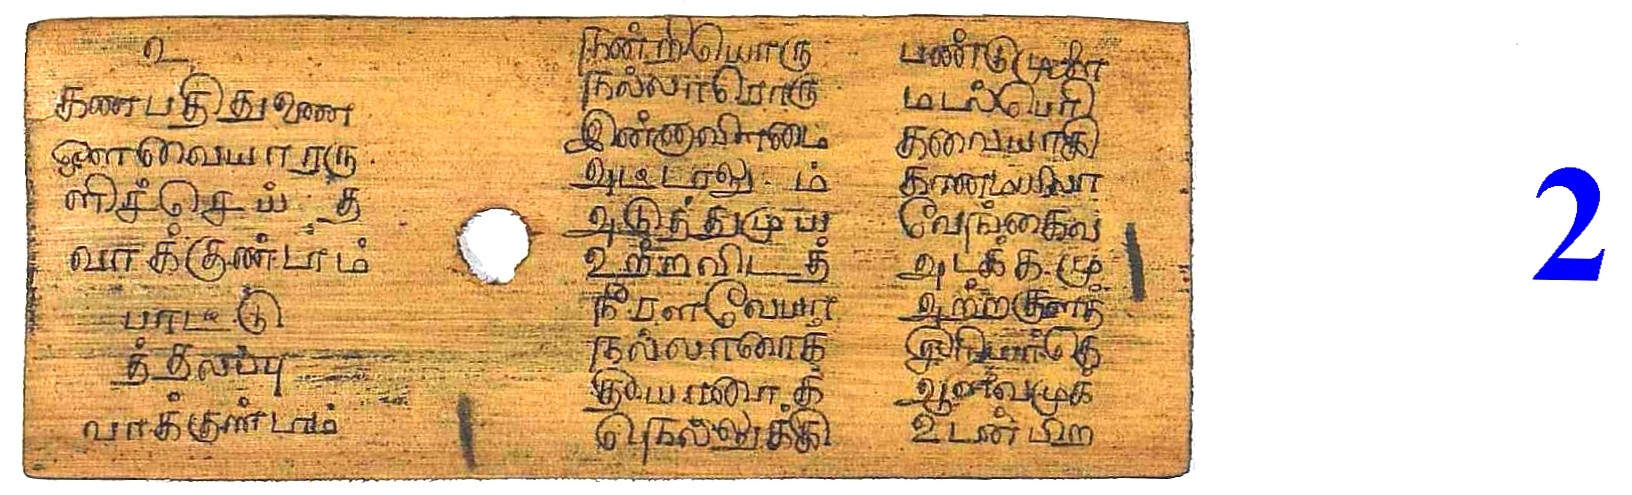 உ
கணபதி துணை
ஔவையாரரு
ளிச்செய் த
வாக்குண்டாம்
பாட்டு
த்தலப்பு
வாக்குண்டாம்
நன்றியொரு
நல்லாரொரு
இன்னாவிளமை
அட்டாலு ம்
அடுத்துமுய
உற்றவிடத்
நீரளவேயா
நல்லாரைக்
தீயாரைக்
நெல்லுக்கி
பண்டுமுள
மடல்பெரி
கவையாகி
கானமயிலா
வேங்கைவ
அடக்கமு
அற்றகுளத்
சீரியர்கெ
ஆனமுக
உடன்பிற
2